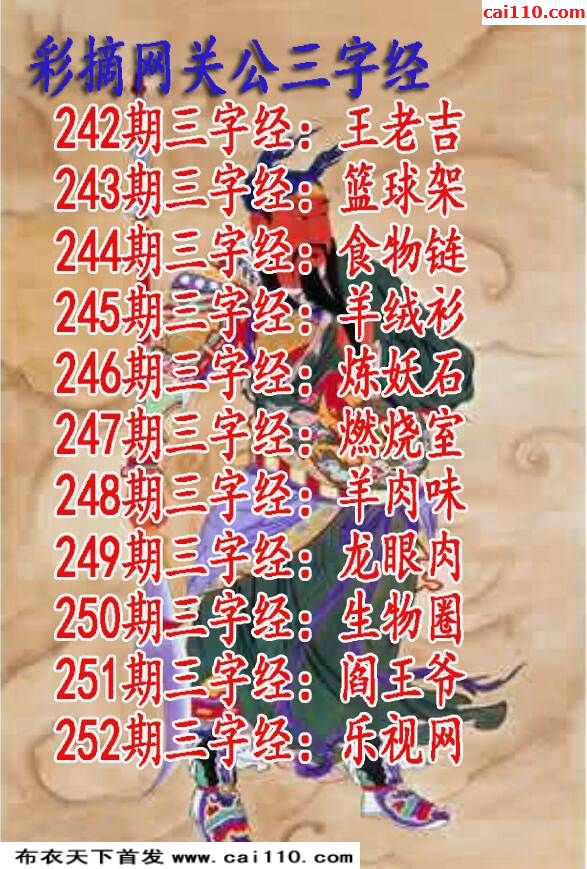 cai110.com
彩摘网关公三字经
242期三字经：王老吉
243期三字经：篮球架
244期三字经：食物链
245期三字经：羊绒衫
246期三字经：炼妖石
247期三字经：燃烧室
248期三字经：羊肉味
249期三字经：龙眼肉
250期三字经：生物圈
251期三字经：阎王爷
252期三字经：乐视网
布衣天下首发 www.cai110.com